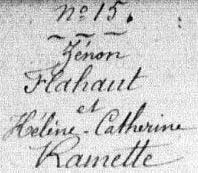 n° 15.
Zénon
Flahaut
et
Hélène-Catherine
Ramette